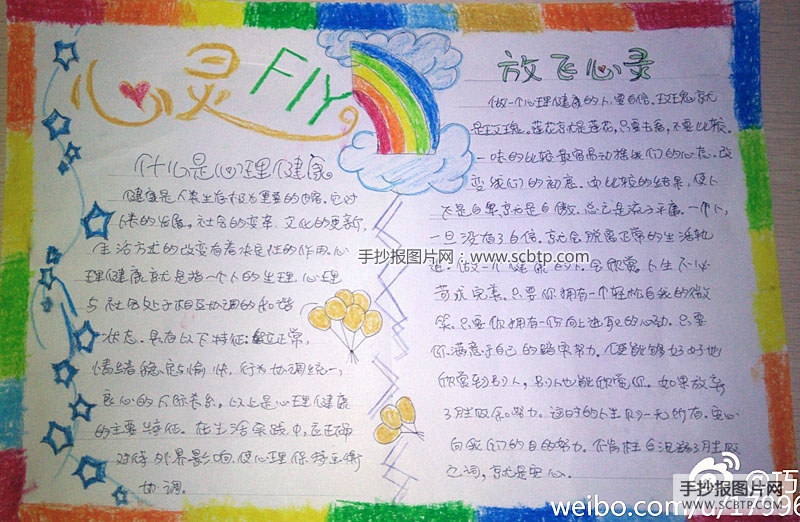 手抄报图片网 www.scbtp.com
心灵 FlY
什么是心理健康
健康是人类生存极为重要的内容，它对
人类的发展，社会的变革，文化的更新，
生活方式的改变有着决定性的作用。心
理健康就是指一个人的生理、心理
与社会处于相互协调的和谐
状态。具有以下特征：智力正常，
情绪稳定与愉快，行为协调统一，
良心的人际关系，以上是心理健康
的主要特征。在生活实践中，应正确
对待外界影响，使心理保持平衡
协调。
放飞心灵
做一个心理健康的人，要自信。玫瑰就
是玫瑰。莲花就是莲花，只要去看，不要比较。
一味的比较最容易动摇我们的心态。改
变我们的初意。由比较的结果，使人
不是自卑就是自傲。总之是流于平庸。一个人，
一旦没有了自信，就会脱离正常的生活轨
道。做一个健康的人，会欣赏。人生不必
苛求完美，只要你拥有一个轻松自我的微
笑。只要你拥有一份向上进取的心动。只要
你满意于自己的踏实努力。便能够好好地
欣赏到别人，别人也能欣赏你。如果放弃
了胜败和努力。这时的人生则一无所有。安心
向我们的目的努力。不
之词，就是安心。
手抄报图片网：www.scbtp.com
@巧
手抄报图片网
WWW.SCBTP.COM
weibo.com/u/17596